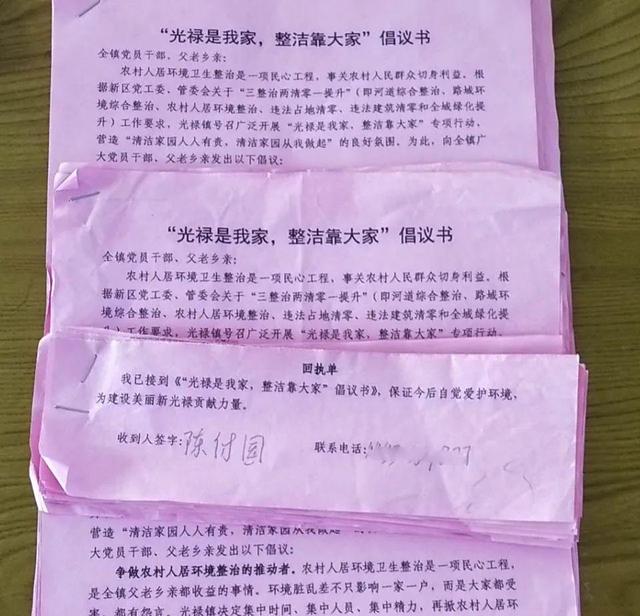 “光禄是我家，整洁靠大家”倡议书
全镇党员干部、父老乡亲：
农村人居环境卫生整治是一项民心工程，事关农村人民群众切身利益。根
据新区党工委、管委会关于“三整治两清零一提升”（即河道综合整治、路域环
境综合整治、农村人居环境整治、违法占地清零、违法建筑清零和全域绿化提
升）工作要求，光禄镇号召广泛开展“光禄是我家、整洁靠大家”专项行动、
营造“清洁家园人人有责，清洁家园从我做起”的良好氛围。为此，向全镇广
大党员干部、父老乡亲发出以下倡议：
“光禄是我家，整洁靠大家”倡议书
全镇党员干部、父老乡亲：
农村人居环境卫生整治是一项民心工程，事关农村人民群众切身利益。根
据新区党工委、管委会关于“三整治两清零一提升”（即河道综合整治、路域环
境综合整治、农村人居环境整治、违法占地清零、违法建筑清零和全域绿化提
升）工作要求，光禄镇号召广泛开展“光禄是我家、整洁靠大家”专项行动、
回执单
我已接到《“光禄是我家，整洁靠大家”倡议书》，保证今后自觉爱护环境，
为建设美丽新光禄贡献力量。
收到人签字：陈付园 联系电话：
营造“清洁家园人人有责，清洁家园从我做起”
大党员干部、父老乡亲发出以下倡议：
争做农村人居环境整治的推动者。农村人居环境卫生整治是一项民心工程，
是全镇父老乡亲都收益的事情。环境脏乱差不只影响一家一户，而是大家都受
害、都有怨言。光禄镇决定集中时间、集中人员、集中精力，再掀农村人居环